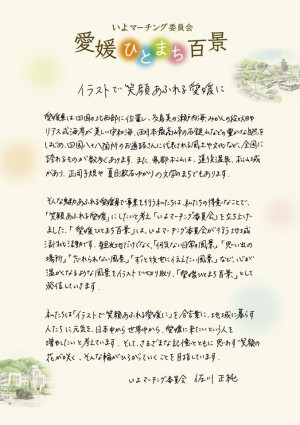 いよマーチング委員会
愛媛ひとまち百景
イラストで笑顔あふれる愛媛に
愛媛県は四国の北西部に位置し、多島美の瀬戸内海
リアス式海岸が美しい宇和海、西日本最高峰の石鎚山などの豊かな自然を
はじめ、四国八十八箇所のお遍路さんに代表される風土や文化など、全国に
誇れるものが数多くあります。また、県都松山は、道後温泉、松山城
があり、正岡子規や夏目漱石ゆかりの文学のまちでもあります。
そんな魅力あふれる愛媛県で事業を行う私たちは、私たちの得意なことで、
「笑顔あふれる愛媛」にしたいと考え「いよマーチング委員会」を立ち上げ
ました。「愛媛ひとまち百景」は、いよマーチング委員会が行う
活動です。観光地だけでなく、「何気ない日常の風景」「思い出の
場所」「忘れられない風景」「ずっと後世に伝えたい風景」など、心が
温かくなるような風景をイラストで切り取り、「愛媛ひとまち百景」として
発信していきます。
私たちは「イラストで笑顔あふれる愛媛に」を合言葉に、地域に暮らす
人たちに元気を、日本中から世界中から、愛媛に来たいという人を
増やしたいと考えています。そして、さまざまな記憶とともに思わず“笑顔の
花”が咲く、そんな輪がひろがっていくことを目指しています。
いよマーチング委員会 佐川 正純